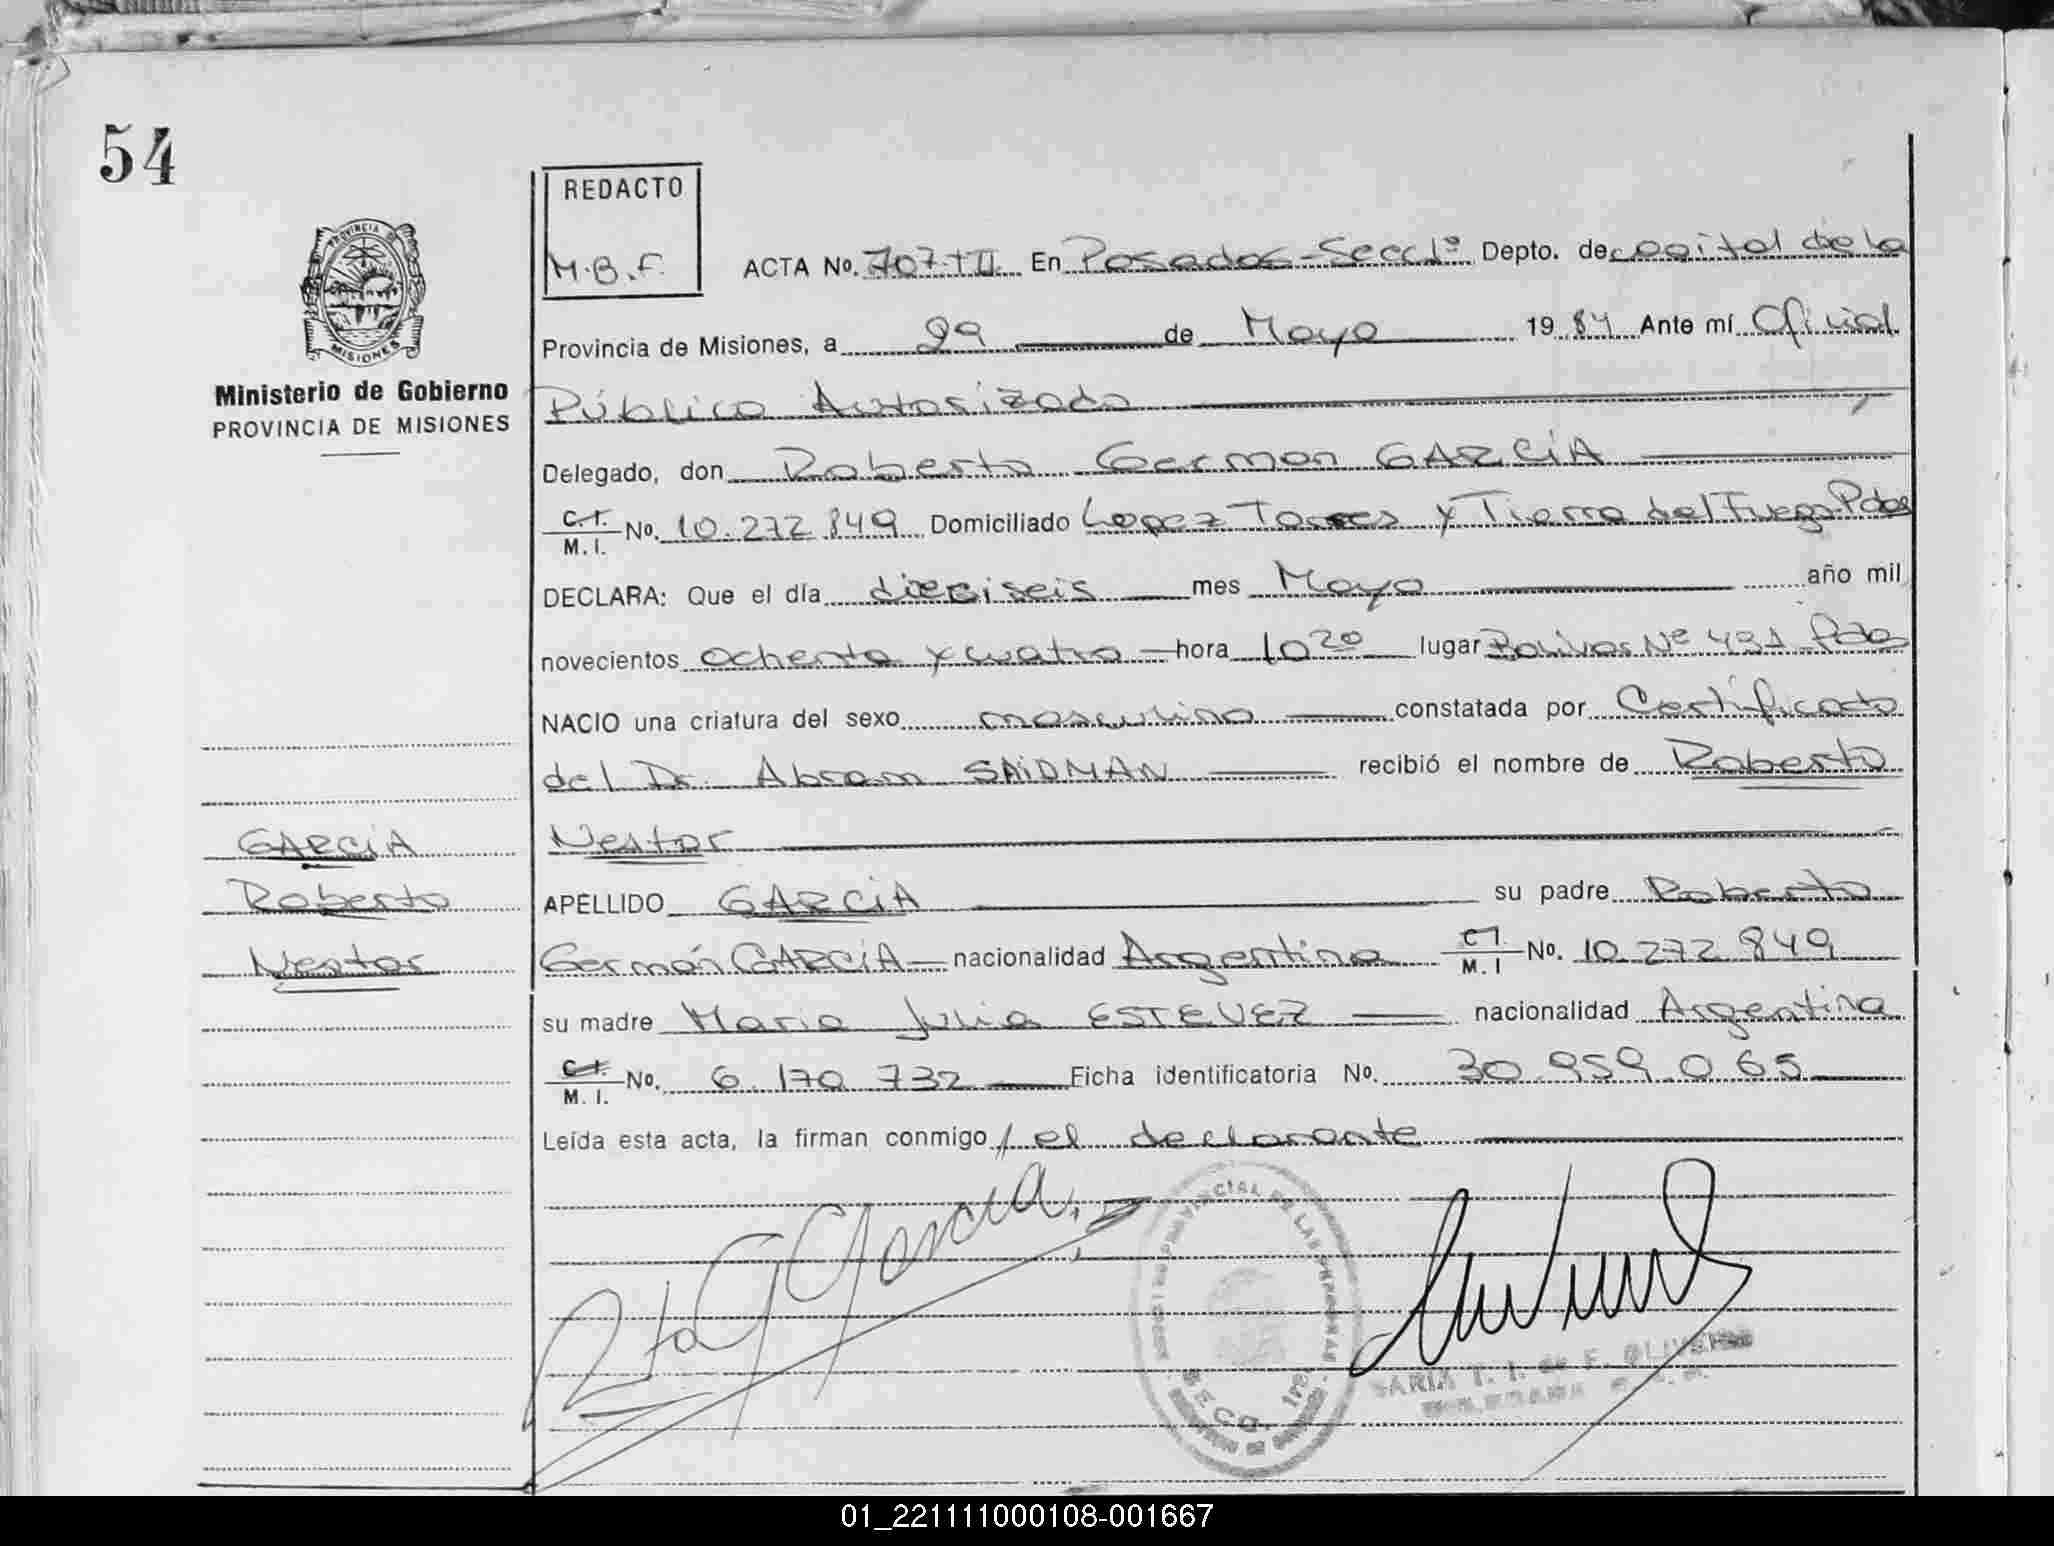 54
PROVINCIA DE
MISIONES
Ministerio de Gobierno
PROVINCIA DE MISIONES
REDACTO
M.B.F.
ACTA No. 707 TII En Posadas-Secc 1º Depto. de capital de la
Provincia de Misiones, a 29 de Mayo 19 84 Ante mí Oficial
Público Autorizado
Delegado, don Roberto German GARCIA
C.I. / M.I. No. 10.272.849 Domiciliado Lopez Torres y Tierra del Fuego-Pdas
DECLARA: Que el día dieciseis mes Mayo año mil
novecientos ochenta y cuatro hora 10 20 lugar Bolivar Nº 431 Pdas
NACIO una criatura del sexo masculino constatada por Certificado
del Dr. Abram SAIDMAN recibió el nombre de Roberto
Nestor
APELLIDO GARCIA su padre Roberto
Germán GARCIA nacionalidad Argentina C.I. / M.I No. 10.272.849
su madre Maria Julia ESTEVEZ nacionalidad Argentina
C.I. / M.I. No. 6.170.732 Ficha identificatoria No. 30.959.065
Leída esta acta, la firman conmigo / el declarante
GARCIA
Roberto
Nestor
PROVINCIAL DE LAS PERSONAS
SECC. 1ra
T. I. de F. OLIVEIRA
01_221111000108-001667